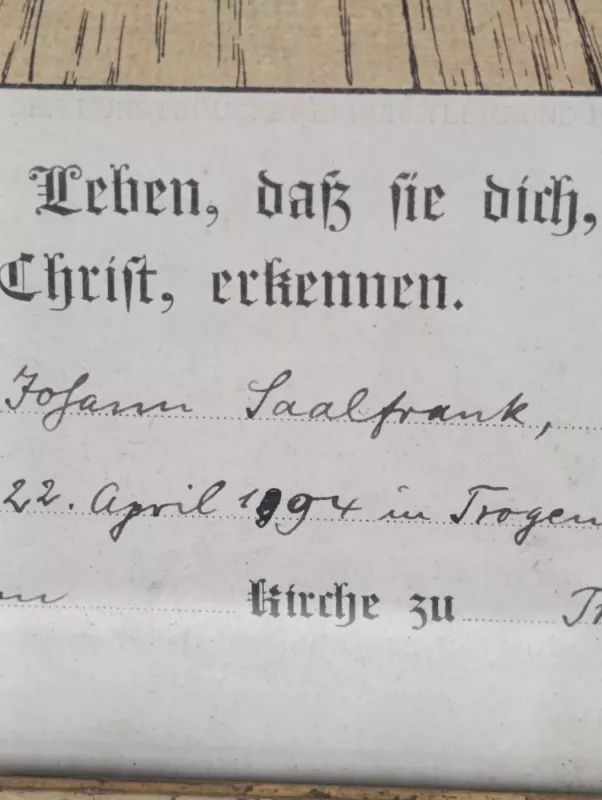 Leben, daß sie dich,
Christ, erkennen.
Johann Saalfrank,
22. April 1894 in Trogen
Kirche zu